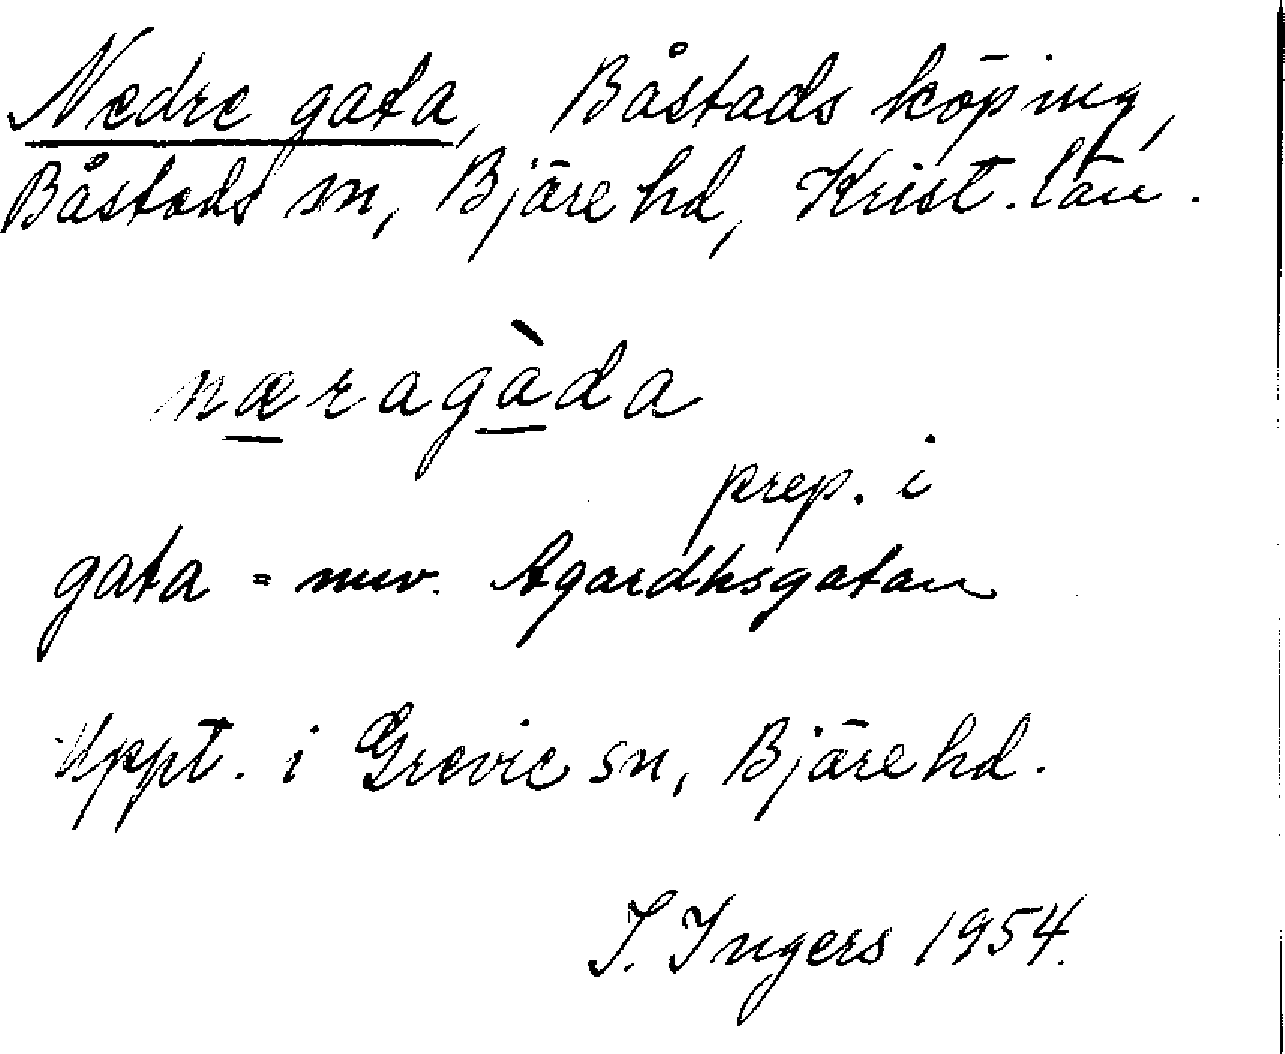 Nedre gata, Båstads köping,
Båstads sn, Bjäre hd, Krist. län.
næragàda
prep. i
gata = nuv. Agardhsgatan
Uppt. i Grevie sn, Bjäre hd.
I. Ingers 1954.